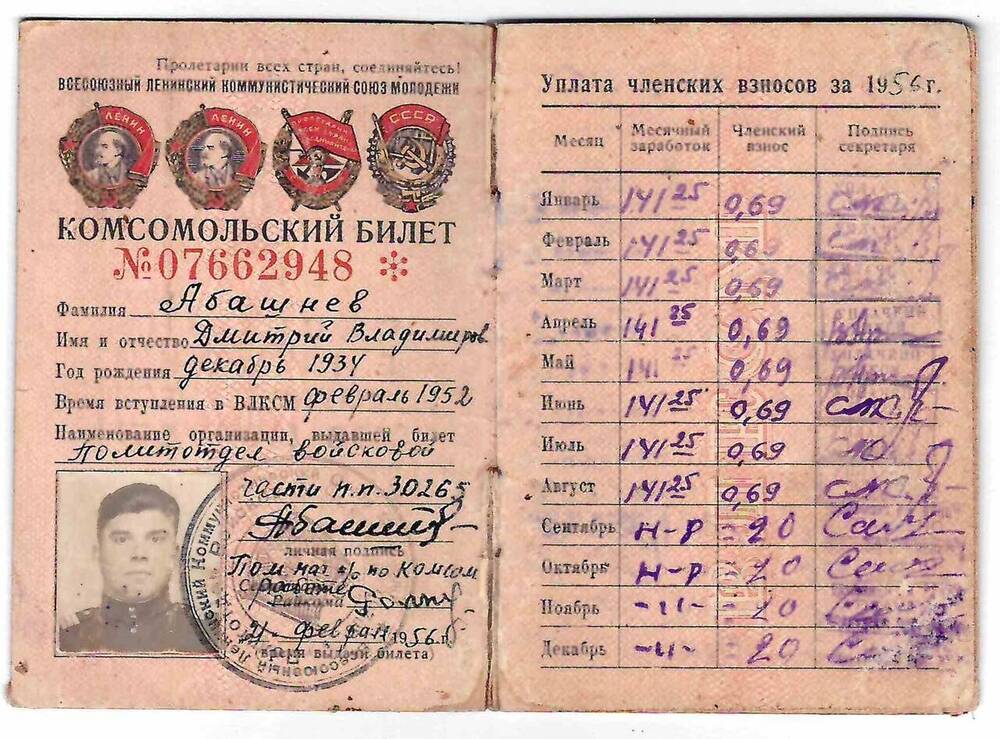 Пролетарии всех стран, соединяйтесь!
ВСЕСОЮЗНЫЙ ЛЕНИНСКИЙ КОММУНИСТИЧЕСКИЙ СОЮЗ МОЛОДЕЖИ
ЛЕНИН ЛЕНИН СССР
КОМСОМОЛЬСКИЙ БИЛЕТ
№07662948
Фамилия Абашнев
Имя и отчество Дмитрий Владимиров
Год рождения декабрь 1934
Время вступления в ВЛКСМ февраль 1952
Наименование организации, выдавшей билет
Политотдел войсковой
части п.п. 30265
личная подпись
Пом нач п/о по Комсом
работе
Райкома
4 февраля 1956 г.
(время выдачи билета)
Уплата членских взносов за 1956 г.
Месяц Месячный заработок Членский взнос Подпись секретаря
Январь 141 25 0,69
Февраль 141 25 0,69
Март 141 25 0,69
Апрель 141 25 0,69
Май 141 25 0,69
Июнь 141 25 0,69
Июль 141 25 0,69
Август 141 25 0,69
Сентябрь н-р -20
Октябрь н-р -20
Ноябрь -"- -20
Декабрь -"- -20